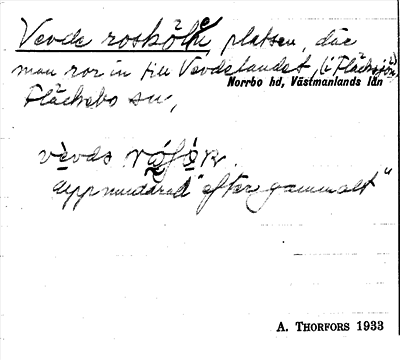 Vevde rosköle, platsen, där
man ror in till Vevdelandet, (i Fläcksjön)
Norrbo hd, Västmanlands län
Fläckebo sn,
vèvds
uppmudrad "efter gammalt"
A. THORFORS 1933